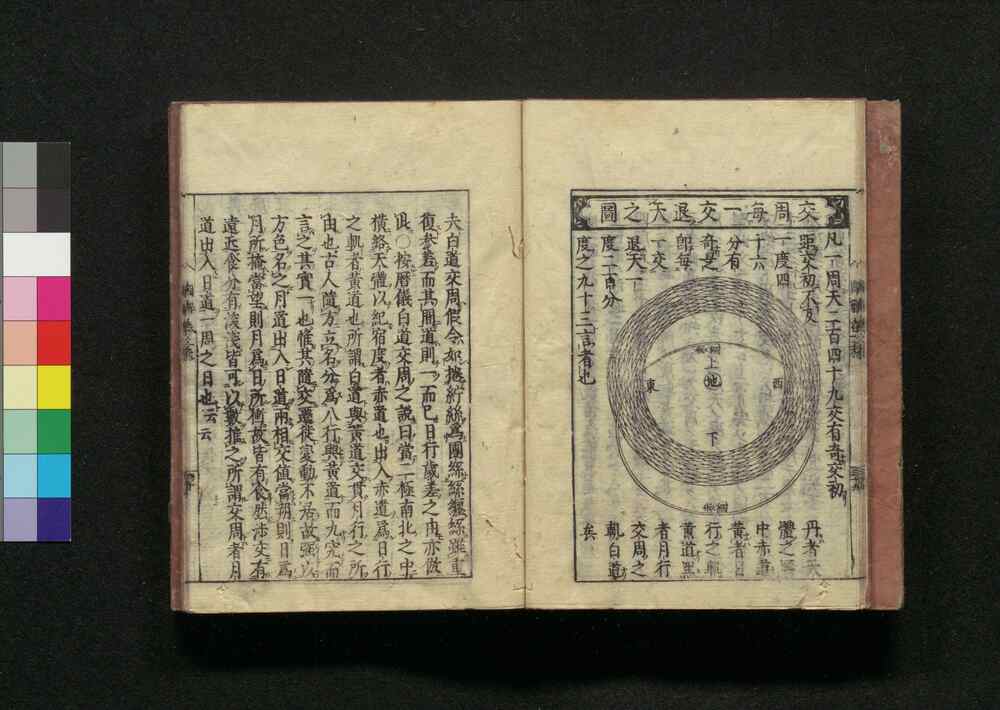 交周每一交退天之圖
凡一周天二百四十九交有奇交初
距交初不及
一度四
十六
分有
奇之
卽每
一交
退天一
度二百分
度之九十二言者也
西
上
地
下
東
丹者天
體之
中赤道
黃者日
行之軌
黃道黑
者月行
交周之
軌白道
矣
夫白道交周假令如捲紵絲爲團絲絲纒絲雖重
復參差而其周道則一而已日行歲差之冉亦倣
此〇按曆儀白道交周之說曰當二極南北之中
橫絡天體以紀宿度者赤道也出入赤道爲日行
之軌者黃道也所謂白道與黃道交貫月行之所
由也古人隨方立名分爲八行與黃道而九究而
言之其實一也惟其隨交遷徙變動不居故强以
方色名之月道出入日道兩相交值當朔則日爲
月所掩當望則月爲日所衝故皆有食然涉交有
遠近食分有淺深皆可以數推之所謂交周者月
道出入日道一周之日也云云